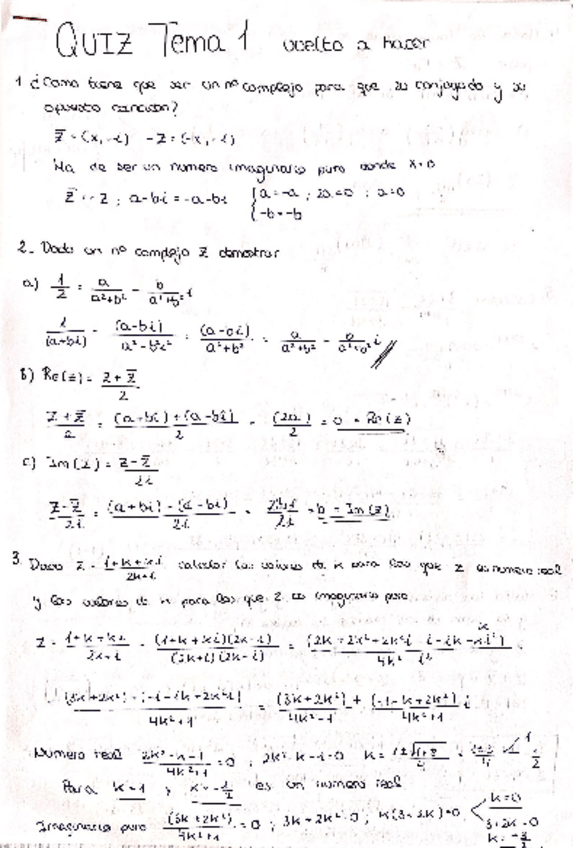 QUIZ Tema 1 vuelto a hacer
1 ¿Como tiene que ser un nº complejo para que su conjugado y su
opuesto coincidan?
Z̅ = (x, -i) -Z = (-x, -i)
Ha de ser un numero imaginario puro donde x=0
Z̅ = -Z ; a-bi = -a-bi { a = -a ; 2a=0 ; a=0
-b=-b
2_ Dado un nº complejo Z demostrar
a) 1/Z = a/(a²+b²) - b/(a²+b²) i
1/(a+bi) = (a-bi)/(a²-b²i²) = (a-bi)/(a²+b²) = a/(a²+b²) - b/(a²+b²) i
b) Re(z) = (z+z̅)/2
(z+z̅)/2 = ((a+bi)+(a-bi))/2 = (2a)/2 = a = Re(z)
c) Im(z) = (z-z̅)/2i
(z-z̅)/2i = ((a+bi)-(a-bi))/2i = 2bi/2i = b = Im(z)
3. Dado Z = (1+k+ki)/(2k+i) calcular los valores de k para los que Z es numero real
y los valores de k para los que Z es imaginario puro
Z = (1+k+ki)/(2k+i) = (1+k+ki)(2k-i)/(2k+i)(2k-i) =
(3k+2k²)/(4k²+1) + (-1-k+2k²)/(4k²+1) i
Numero real (2k²-k-1)/(4k²+1) = 0 ; 2k²-k-1=0 k=
Para k=1 y k=-1/2 es un numero real
Imaginario puro (3k+2k²)/(4k²+1) = 0 ; 3k+2k²=0 ; k(3+2k)=0
k=0
3+2k=0
k=-3/2